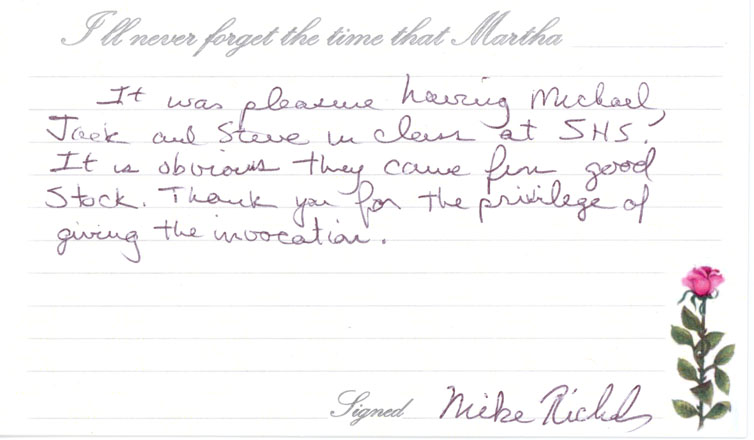 I'll never forget the time that Martha
It was pleasure having Michael,
Jack and Steve in class at SHS.
It is obvious they came from good
Stock. Thank you for the privilege of
giving the invocation.
Signed Mike